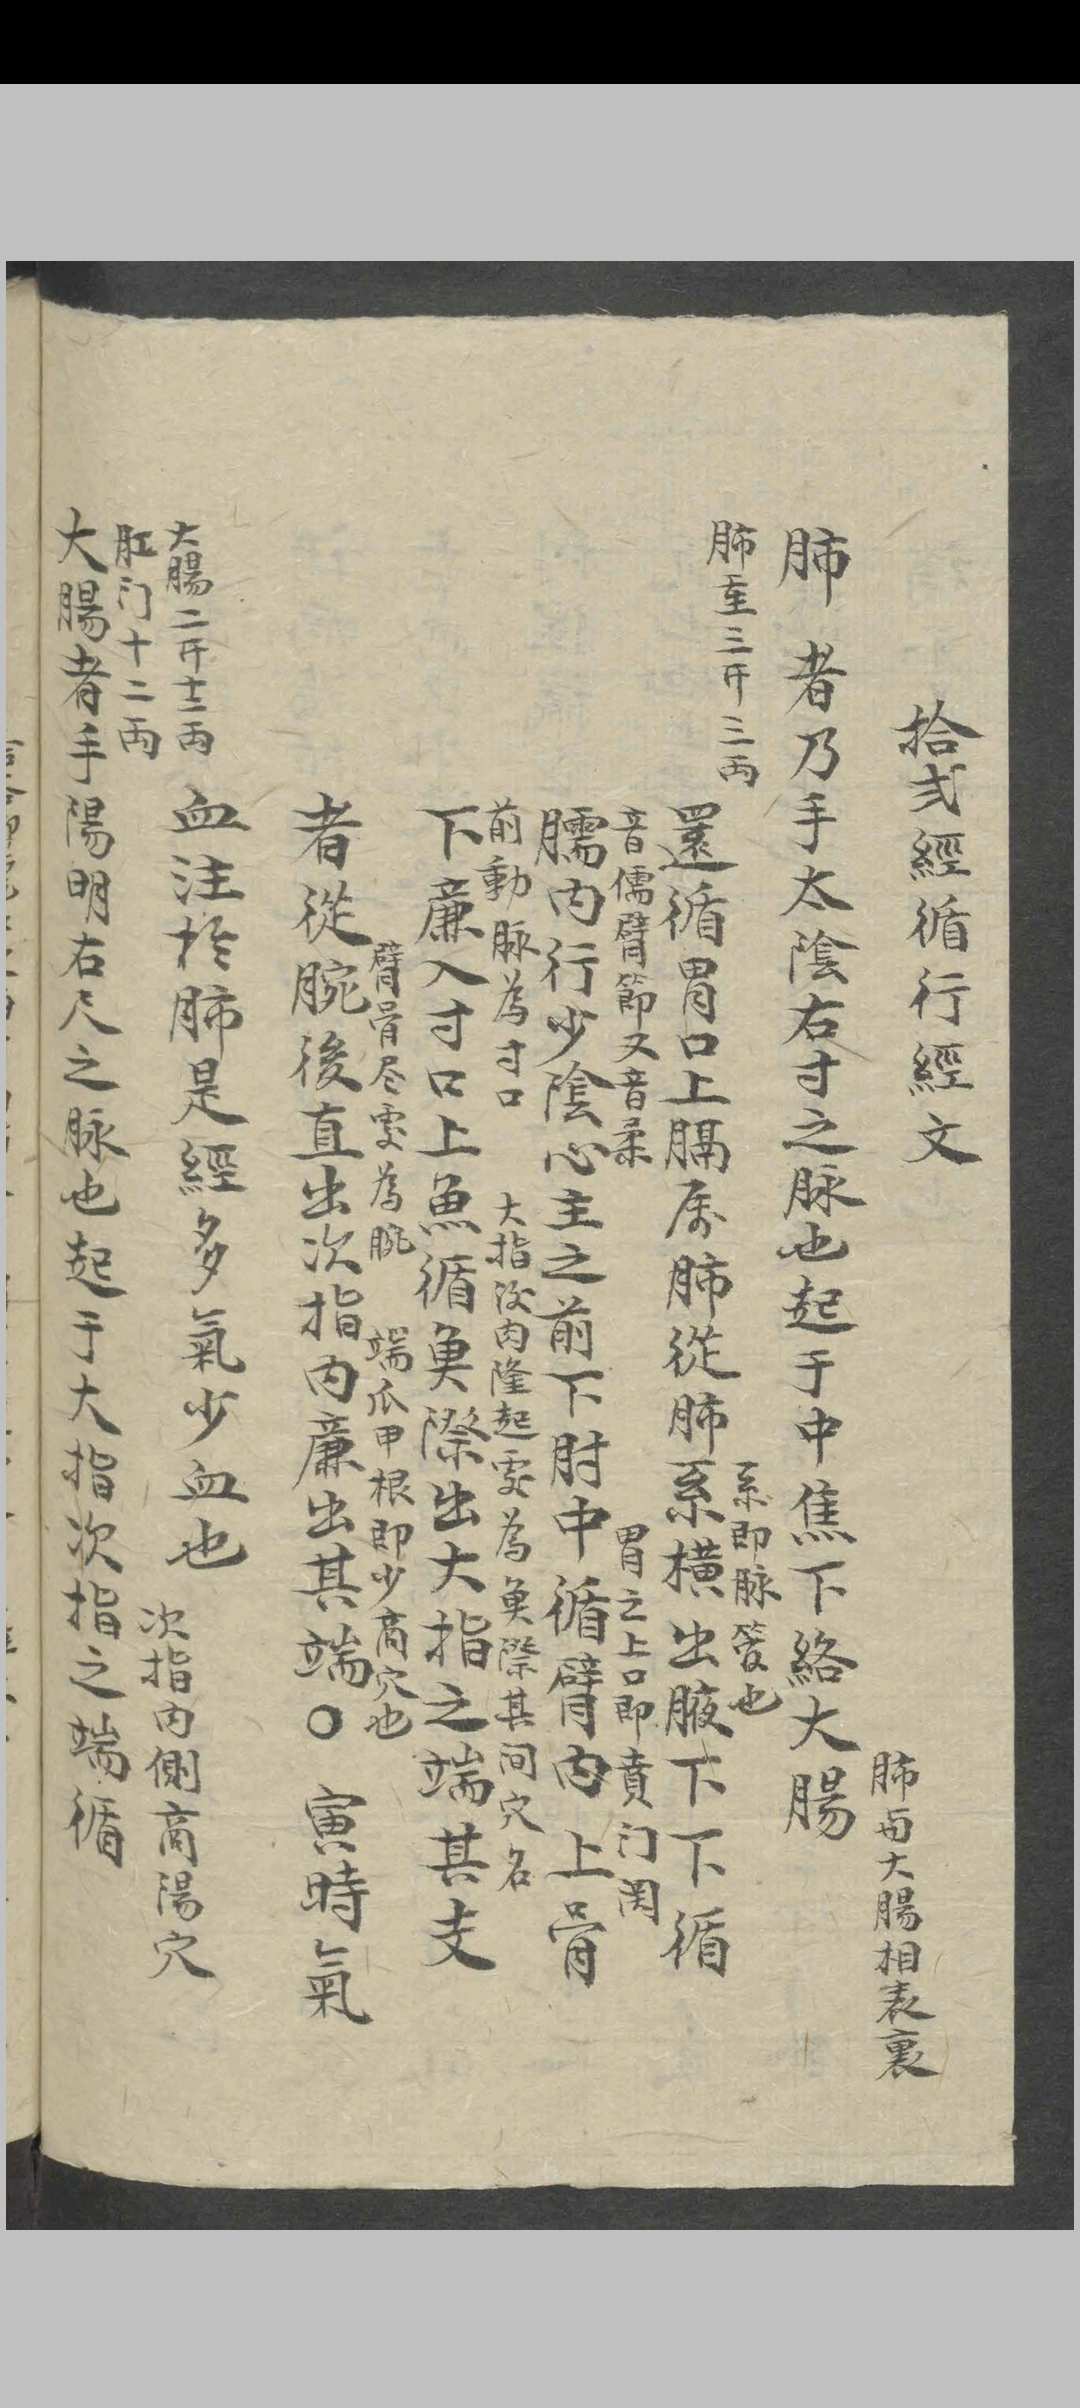 拾弍經循行經文
肺與大腸相表裏
肺者乃手太陰右寸之脉也起于中焦下絡大腸
肺重三斤三両
系即脉管也
還循胃口上膈属肺從肺系横出腋下下循
音儒臂節又音柔
胃之上口即賁门関
臑内行少陰心主之前下肘中循臂内上骨
前動脉為寸口
大指後肉隆起處為魚際其间穴名
下廉入寸口上魚循魚際出大指之端其支
臂骨尽處為腕
端爪甲根即少商穴也
者從腕後直出次指内廉出其端〇寅時氣
血注於肺是經多氣少血也
大腸二斤十二両
肛门十二両
次指内側商陽穴
大腸者手陽明右尺之脉也起于大指次指之端循